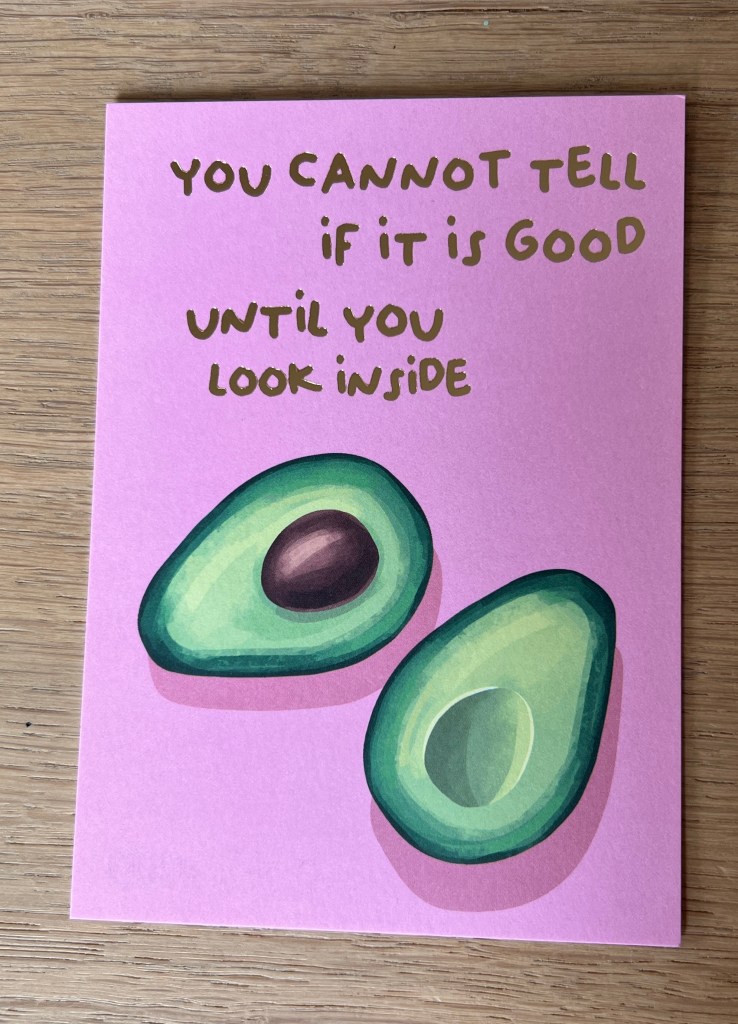 YOU CANNOT TELL
iF iT iS GOOD
UNTiL YOU
LOOK iNSiDE